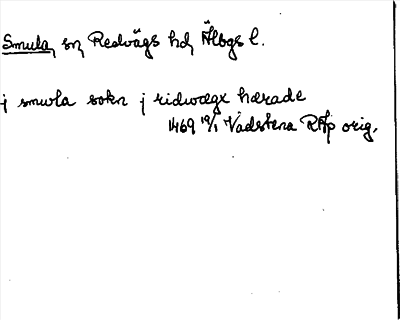 Smula, sn, Redvägs hd, Älvbgs l.
j smwla sokn j ridwægx hærade
1469 19/1 Vadstena RAp orig.